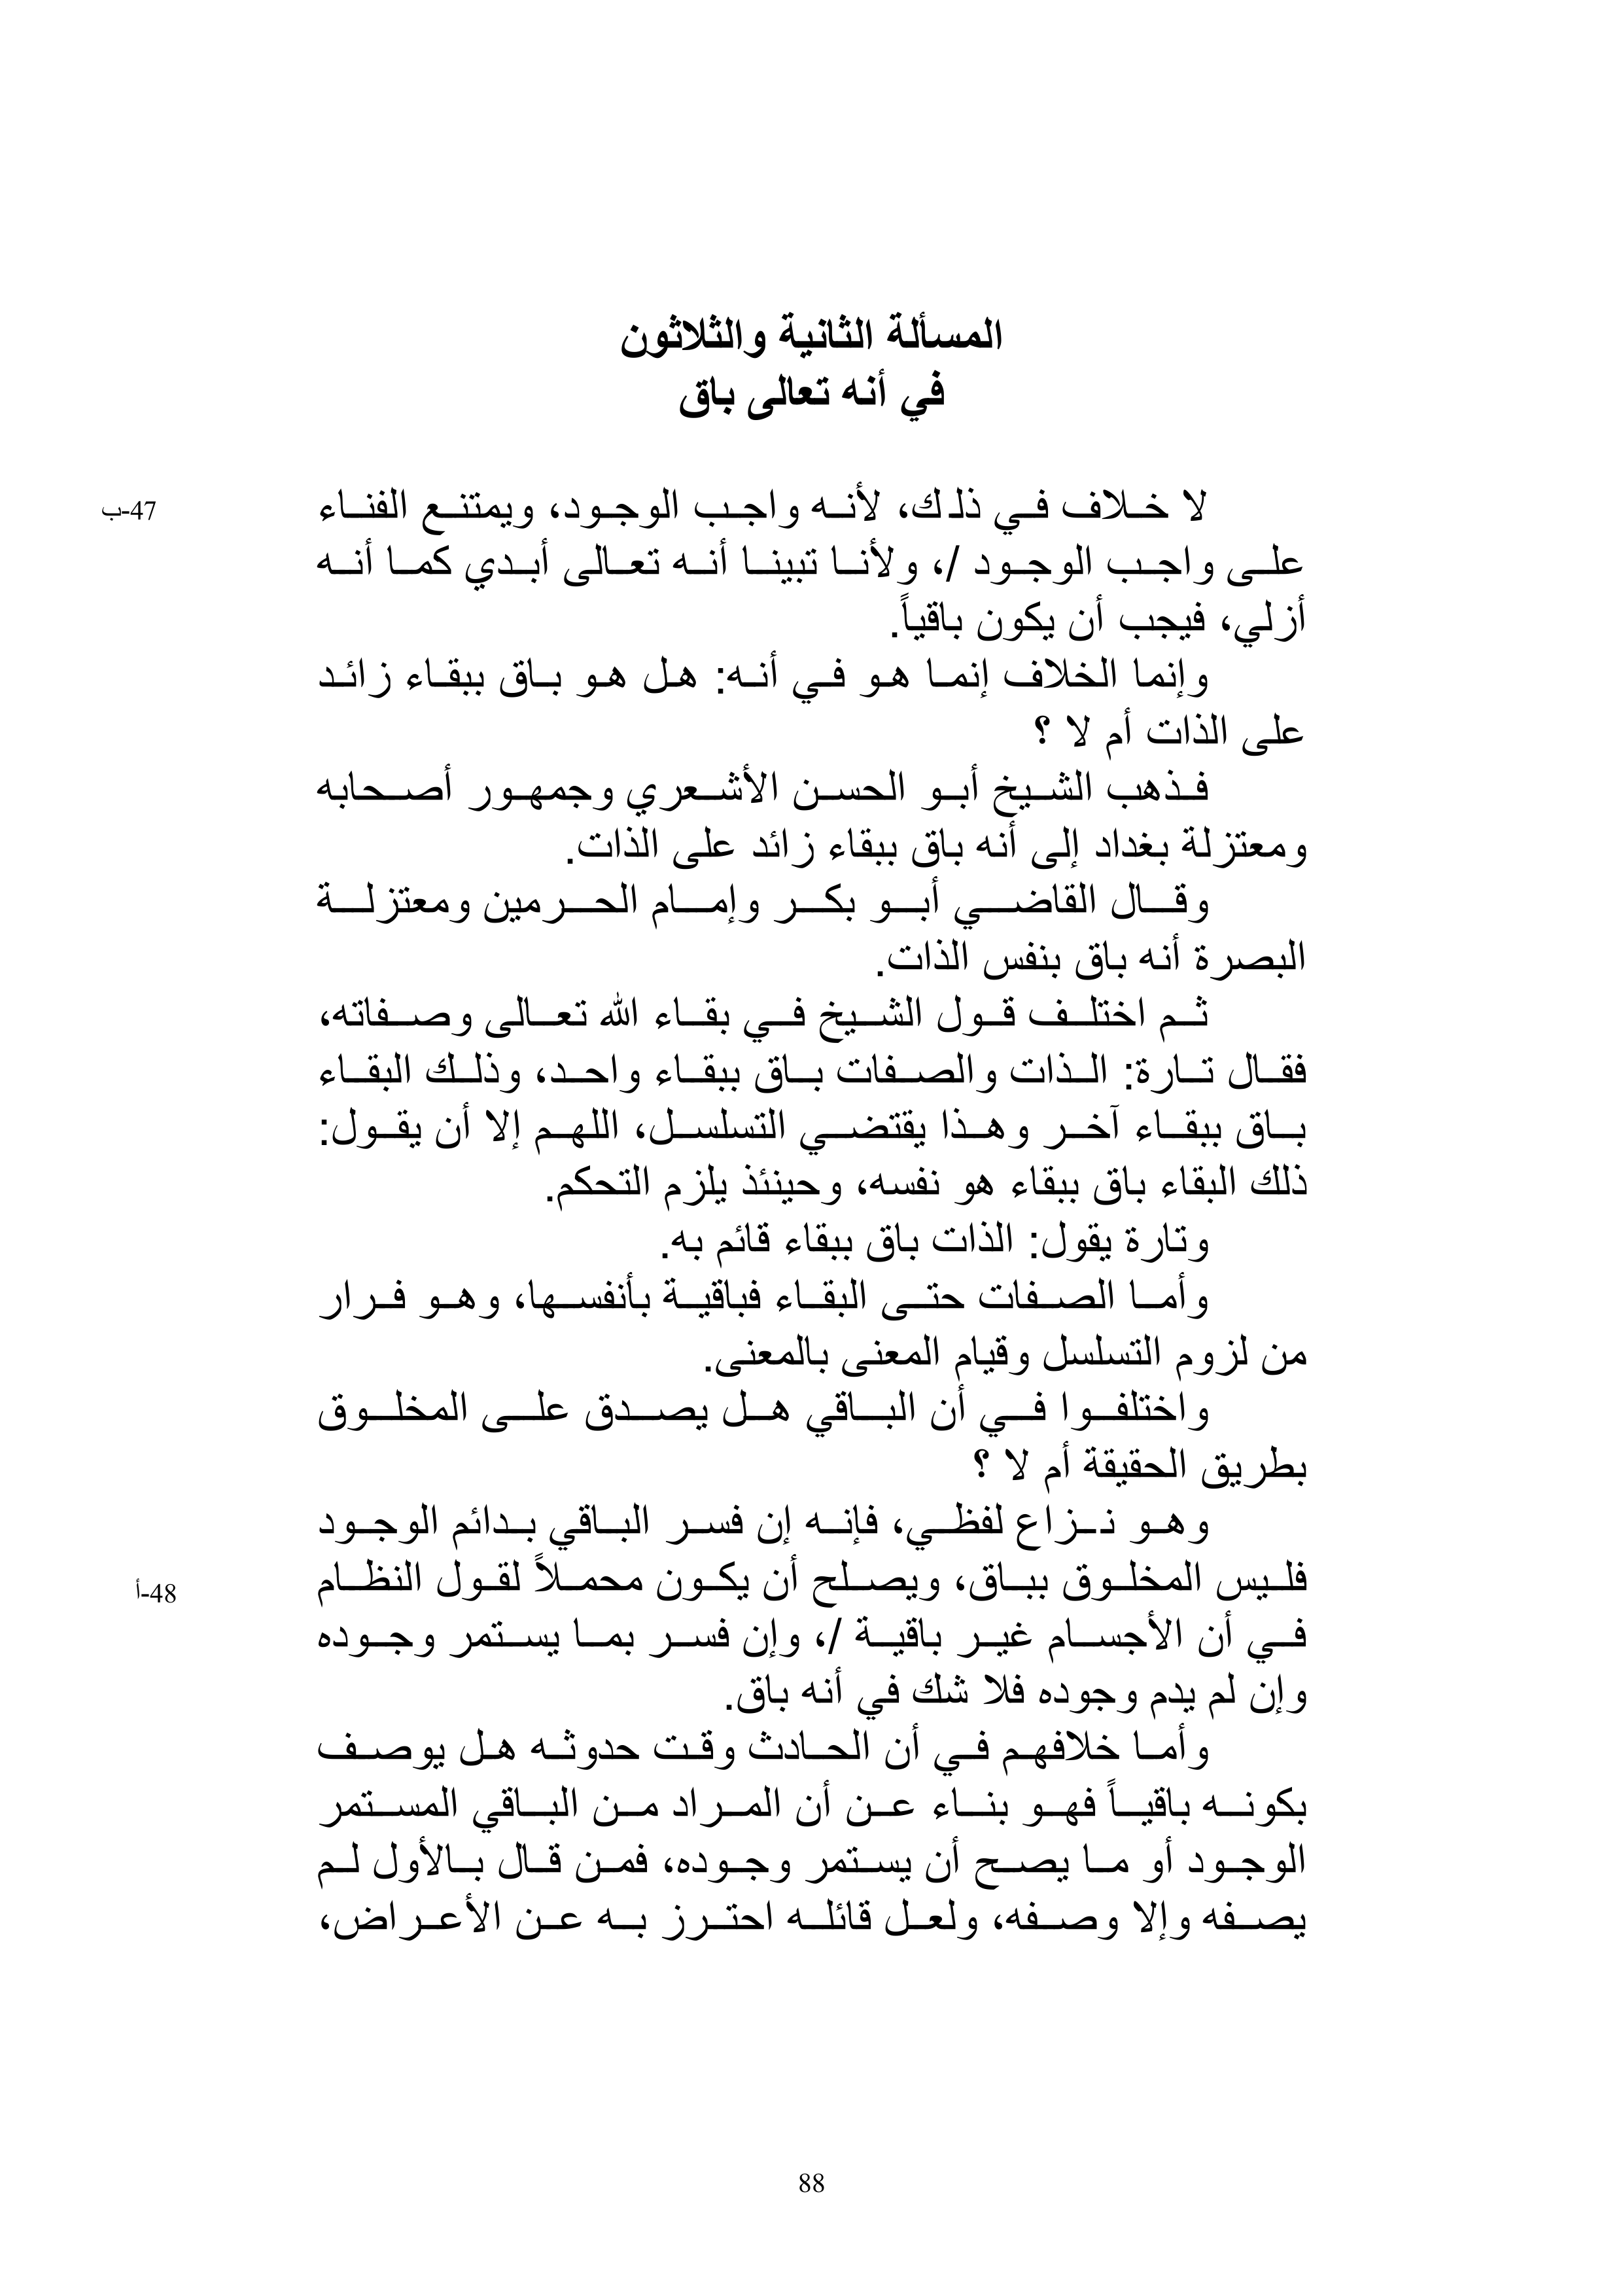 المسألة الثانية والثلاثون
في أنه تعالى باق
لا خلاف في ذلك، لأنه واجب الوجود، ويمتنع الفناء
47-ب
على واجب الوجود /، ولأنا تبينا أنه تعالى أبدي كما أنه
أزلي، فيجب أن يكون باقياً.
وإنما الخلاف إنما هو في أنه: هل هو باق ببقاء زائد
على الذات أم لا ؟
فذهب الشيخ أبو الحسن الأشعري وجمهور أصحابه
ومعتزلة بغداد إلى أنه باق ببقاء زائد على الذات.
وقال القاضي أبو بكر وإمام الحرمين ومعتزلة
البصرة أنه باق بنفس الذات.
ثم اختلف قول الشيخ في بقاء الله تعالى وصفاته،
فقال تارة: الذات والصفات باق ببقاء واحد، وذلك البقاء
باق ببقاء آخر وهذا يقتضي التسلسل، اللهم إلا أن يقول:
ذلك البقاء باق ببقاء هو نفسه، وحينئذ يلزم التحكم.
وتارة يقول: الذات باق ببقاء قائم به.
وأما الصفات حتى البقاء فباقية بأنفسها، وهو فرار
من لزوم التسلسل وقيام المعنى بالمعنى.
واختلفوا في أن الباقي هل يصدق على المخلوق
بطريق الحقيقة أم لا ؟
وهو نزاع لفظي، فإنه إن فسر الباقي بدائم الوجود
فليس المخلوق بباق، ويصلح أن يكون محملاً لقول النظام
48-أ
في أن الأجسام غير باقية /، وإن فسر بما يستمر وجوده
وإن لم يدم وجوده فلا شك في أنه باق.
وأما خلافهم في أن الحادث وقت حدوثه هل يوصف
بكونه باقياً فهو بناء عن أن المراد من الباقي المستمر
الوجود أو ما يصح أن يستمر وجوده، فمن قال بالأول لم
يصفه وإلا وصفه، ولعل قائله احترز به عن الأعراض،
88